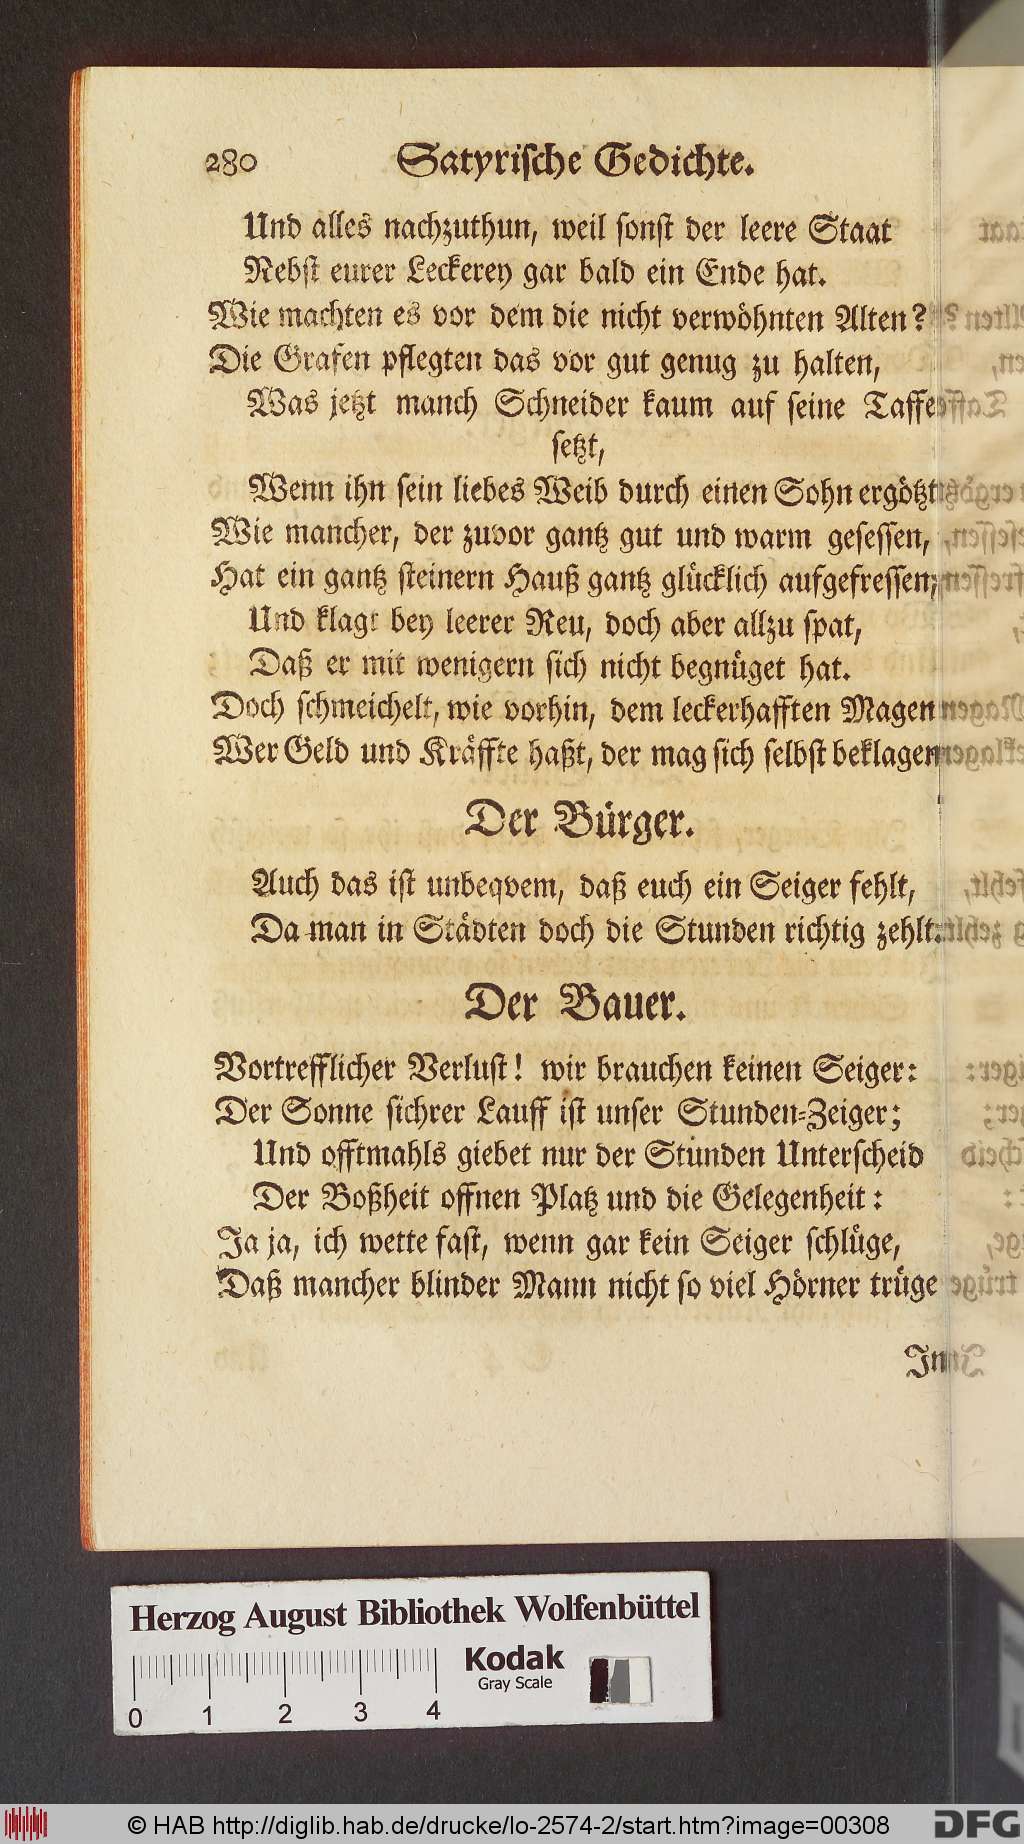 280 Satyrische Gedichte.
Und alles nachzuthun, weil sonst der leere Staat
Nebst eurer Leckerey gar bald ein Ende hat.
Wie machten es vor dem die nicht verwöhnten Alten?
Die Grafen pflegten das vor gut genug zu halten,
Was jetzt manch Schneider kaum auf seine Taffel
setzt,
Wenn ihn sein liebes Weib durch einen Sohn ergötzt
Wie mancher, der zuvor gantz gut und warm gesessen,
Hat ein gantz steinern Hauß gantz glücklich aufgefressen,
Und klagt bey leerer Reu, doch aber allzu spat,
Daß er mit wenigern sich nicht begnüget hat.
Doch schmeichelt, wie vorhin, dem leckerhafften Magen
Wer Geld und Kräffte haßt, der mag sich selbst beklagen
Der Bürger.
Auch das ist unbeqvem, daß euch ein Seiger fehlt,
Da man in Städten doch die Stunden richtig zehlt.
Der Bauer.
Vortrefflicher Verlust! wir brauchen keinen Seiger:
Der Sonne sichrer Lauff ist unser Stunden-Zeiger;
Und offtmahls giebet nur der Stunden Unterscheid
Der Boßheit offnen Platz und die Gelegenheit:
Ja ja, ich wette fast, wenn gar kein Seiger schlüge,
Daß mancher blinder Mann nicht so viel Hörner trüge
Herzog August Bibliothek Wolfenbüttel
Kodak
Gray Scale
0 1 2 3 4
© HAB http://diglib.hab.de/drucke/lo-2574-2/start.htm?image=00308
DFG